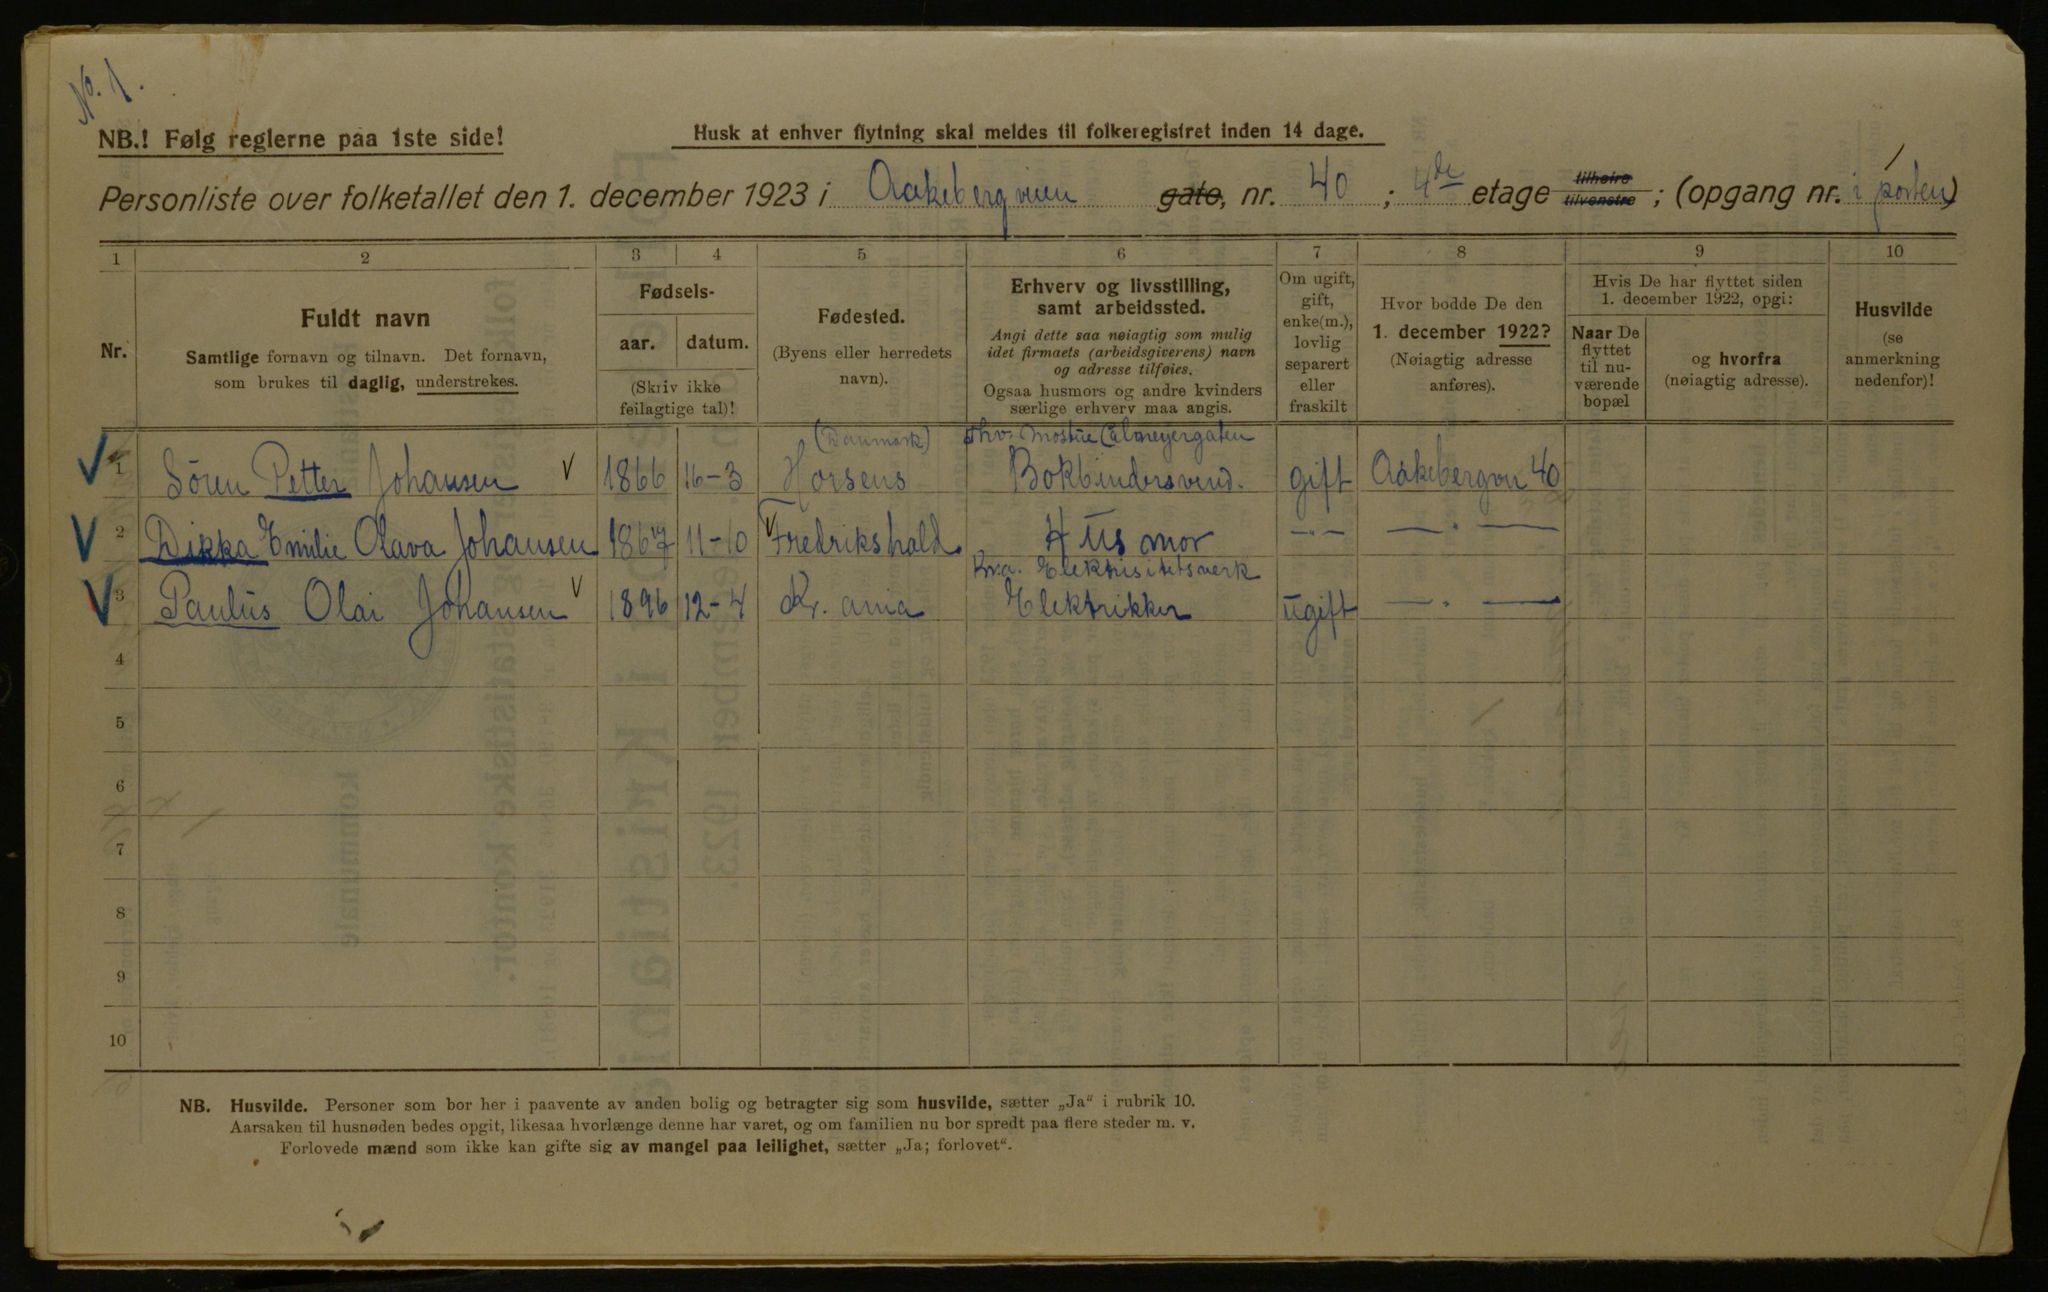 No. 1.
NB.! Følg reglerne paa 1ste side!
Husk at enhver flytning skal meldes til folkeregistret inden 14 dage.
Personliste over folketallet den 1. december 1923 i Aakebergveien gate, nr. 40 ; 4de etage tilhøire tilvenstre ; (opgang nr. 1 i porten)
1 2 3 4 5 6 7 8 9 10
Nr.
Fuldt navn
Samtlige fornavn og tilnavn. Det fornavn,
som brukes til daglig, understrekes.
Fødsels-
aar. datum.
(Skriv ikke
feilagtige tal)!
Fødested.
(Byens eller herredets
navn).
Erhverv og livsstilling,
samt arbeidssted.
Angi dette saa nøiagtig som mulig
idet firmaets (arbeidsgiverens) navn
og adresse tilføies.
Ogsaa husmors og andre kvinders
særlige erhverv maa angis.
Om ugift,
gift,
enke(m.),
lovlig
separert
eller
fraskilt
Hvor bodde De den
1. december 1922?
(Nøiagtig adresse
anføres).
Hvis De har flyttet siden
1. december 1922, opgi:
Naar De
flyttet
til nu-
værende
bopæl
og hvorfra
(nøiagtig adresse).
Husvilde
(se
anmerkning
nedenfor)!
(Danmark) Thv. Mostue Calmeyergaten
1 Sören Petter Johansen 1866 16-3 Horsens Bokbindersvend. gift Aakebergvn 40
2 Dikka Emilie Olava Johansen 1867 11-10 Fredrikshald Husmor —"— —"—
Kr.a. Elektrisitetsverk
3 Paulus Olai Johansen 1896 12-4 Kr. ania Elektrikker ugift —"—
4
5
6
7
8
9
10
NB. Husvilde. Personer som bor her i paavente av anden bolig og betragter sig som husvilde, sætter „Ja“ i rubrik 10.
Aarsaken til husnøden bedes opgit, likesaa hvorlænge denne har varet, og om familien nu bor spredt paa flere steder m. v.
Forlovede mænd som ikke kan gifte sig av mangel paa leilighet, sætter „Ja; forlovet“.